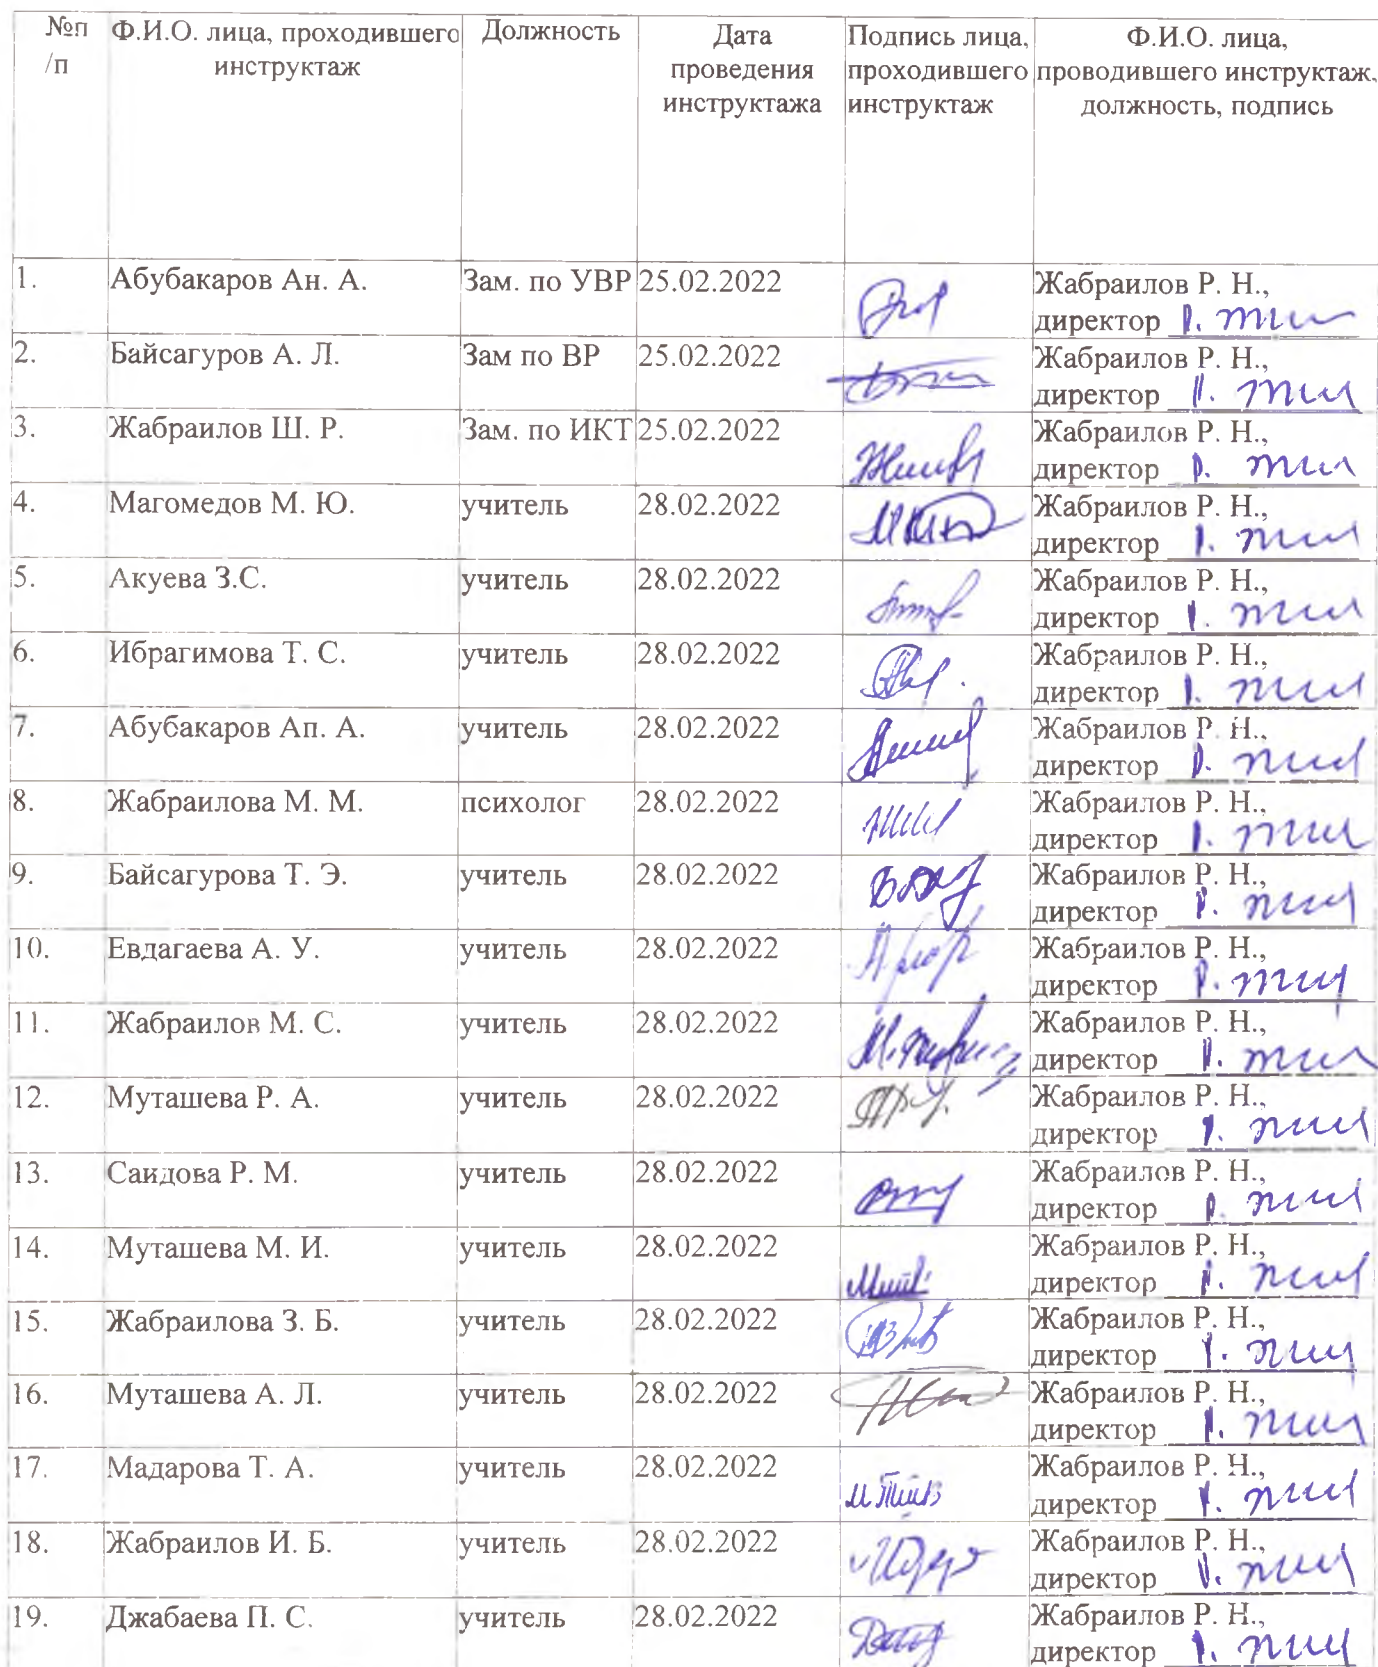 №п Ф.И.О. лица, проходившего Должность Дата Подпись лица, Ф.И.О. лица,
/п инструктаж проведения проходившего проводившего инструктаж,
инструктажа инструктаж должность, подпись
1. Абубакаров Ан. А. Зам. по УВР 25.02.2022 Жабраилов Р. Н.,
директор
2. Байсагуров А. Л. Зам по ВР 25.02.2022 Жабраилов Р. Н.,
директор
3. Жабраилов Ш. Р. Зам. по ИКТ 25.02.2022 Жабраилов Р. Н.,
директор
4. Магомедов М. Ю. учитель 28.02.2022 Жабраилов Р. Н.,
директор
5. Акуева З.С. учитель 28.02.2022 Жабраилов Р. Н.,
директор
6. Ибрагимова Т. С. учитель 28.02.2022 Жабраилов Р. Н.,
директор
7. Абубакаров Ап. А. учитель 28.02.2022 Жабраилов Р. Н.,
директор
8. Жабраилова М. М. психолог 28.02.2022 Жабраилов Р. Н.,
директор
9. Байсагурова Т. Э. учитель 28.02.2022 Жабраилов Р. Н.,
директор
10. Евдагаева А. У. учитель 28.02.2022 Жабраилов Р. Н.,
директор
11. Жабраилов М. С. учитель 28.02.2022 Жабраилов Р. Н.,
директор
12. Муташева Р. А. учитель 28.02.2022 Жабраилов Р. Н.,
директор
13. Саидова Р. М. учитель 28.02.2022 Жабраилов Р. Н.,
директор
14. Муташева М. И. учитель 28.02.2022 Жабраилов Р. Н.,
директор
15. Жабраилова З. Б. учитель 28.02.2022 Жабраилов Р. Н.,
директор
16. Муташева А. Л. учитель 28.02.2022 Жабраилов Р. Н.,
директор
17. Мадарова Т. А. учитель 28.02.2022 Жабраилов Р. Н.,
директор
18. Жабраилов И. Б. учитель 28.02.2022 Жабраилов Р. Н.,
директор
19. Джабаева П. С. учитель 28.02.2022 Жабраилов Р. Н.,
директор